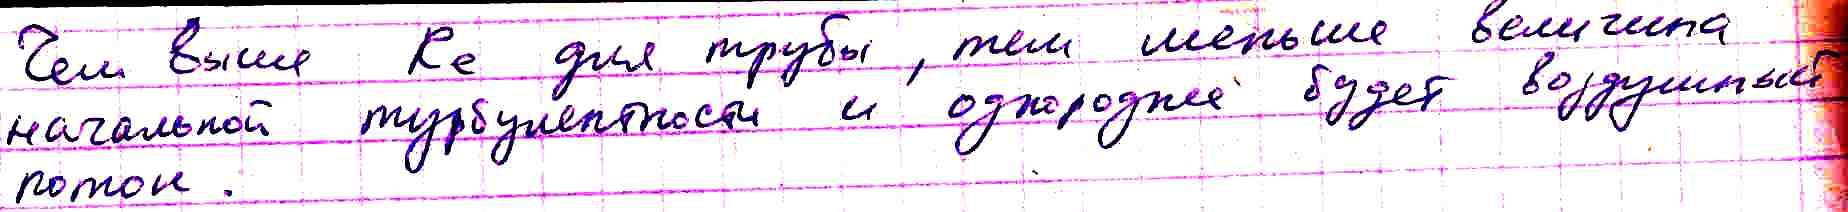 Чем выше Re для трубы, тем меньше величина
начальной турбулентности и однородней будет воздушный
поток.